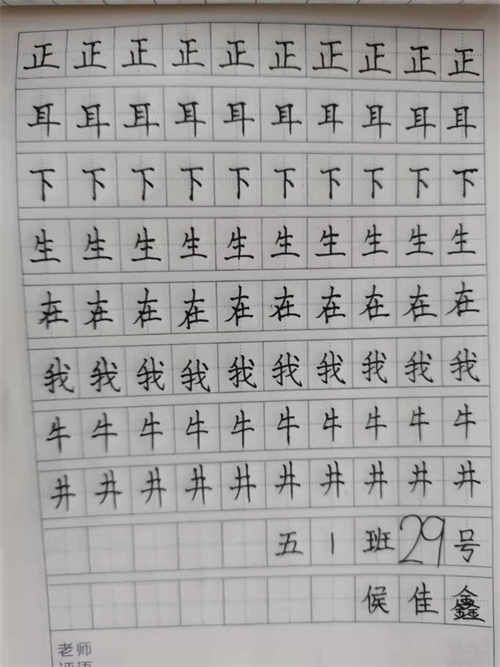 正正正正正正正正正正
耳耳耳耳耳耳耳耳耳耳
下下下下下下下下下下
生生生生生生生生生生
在在在在在在在在在在
我我我我我我我我我我
牛牛牛牛牛牛牛牛牛牛
井井井井井井井井井井
五1班29号
侯佳鑫
老师
评语